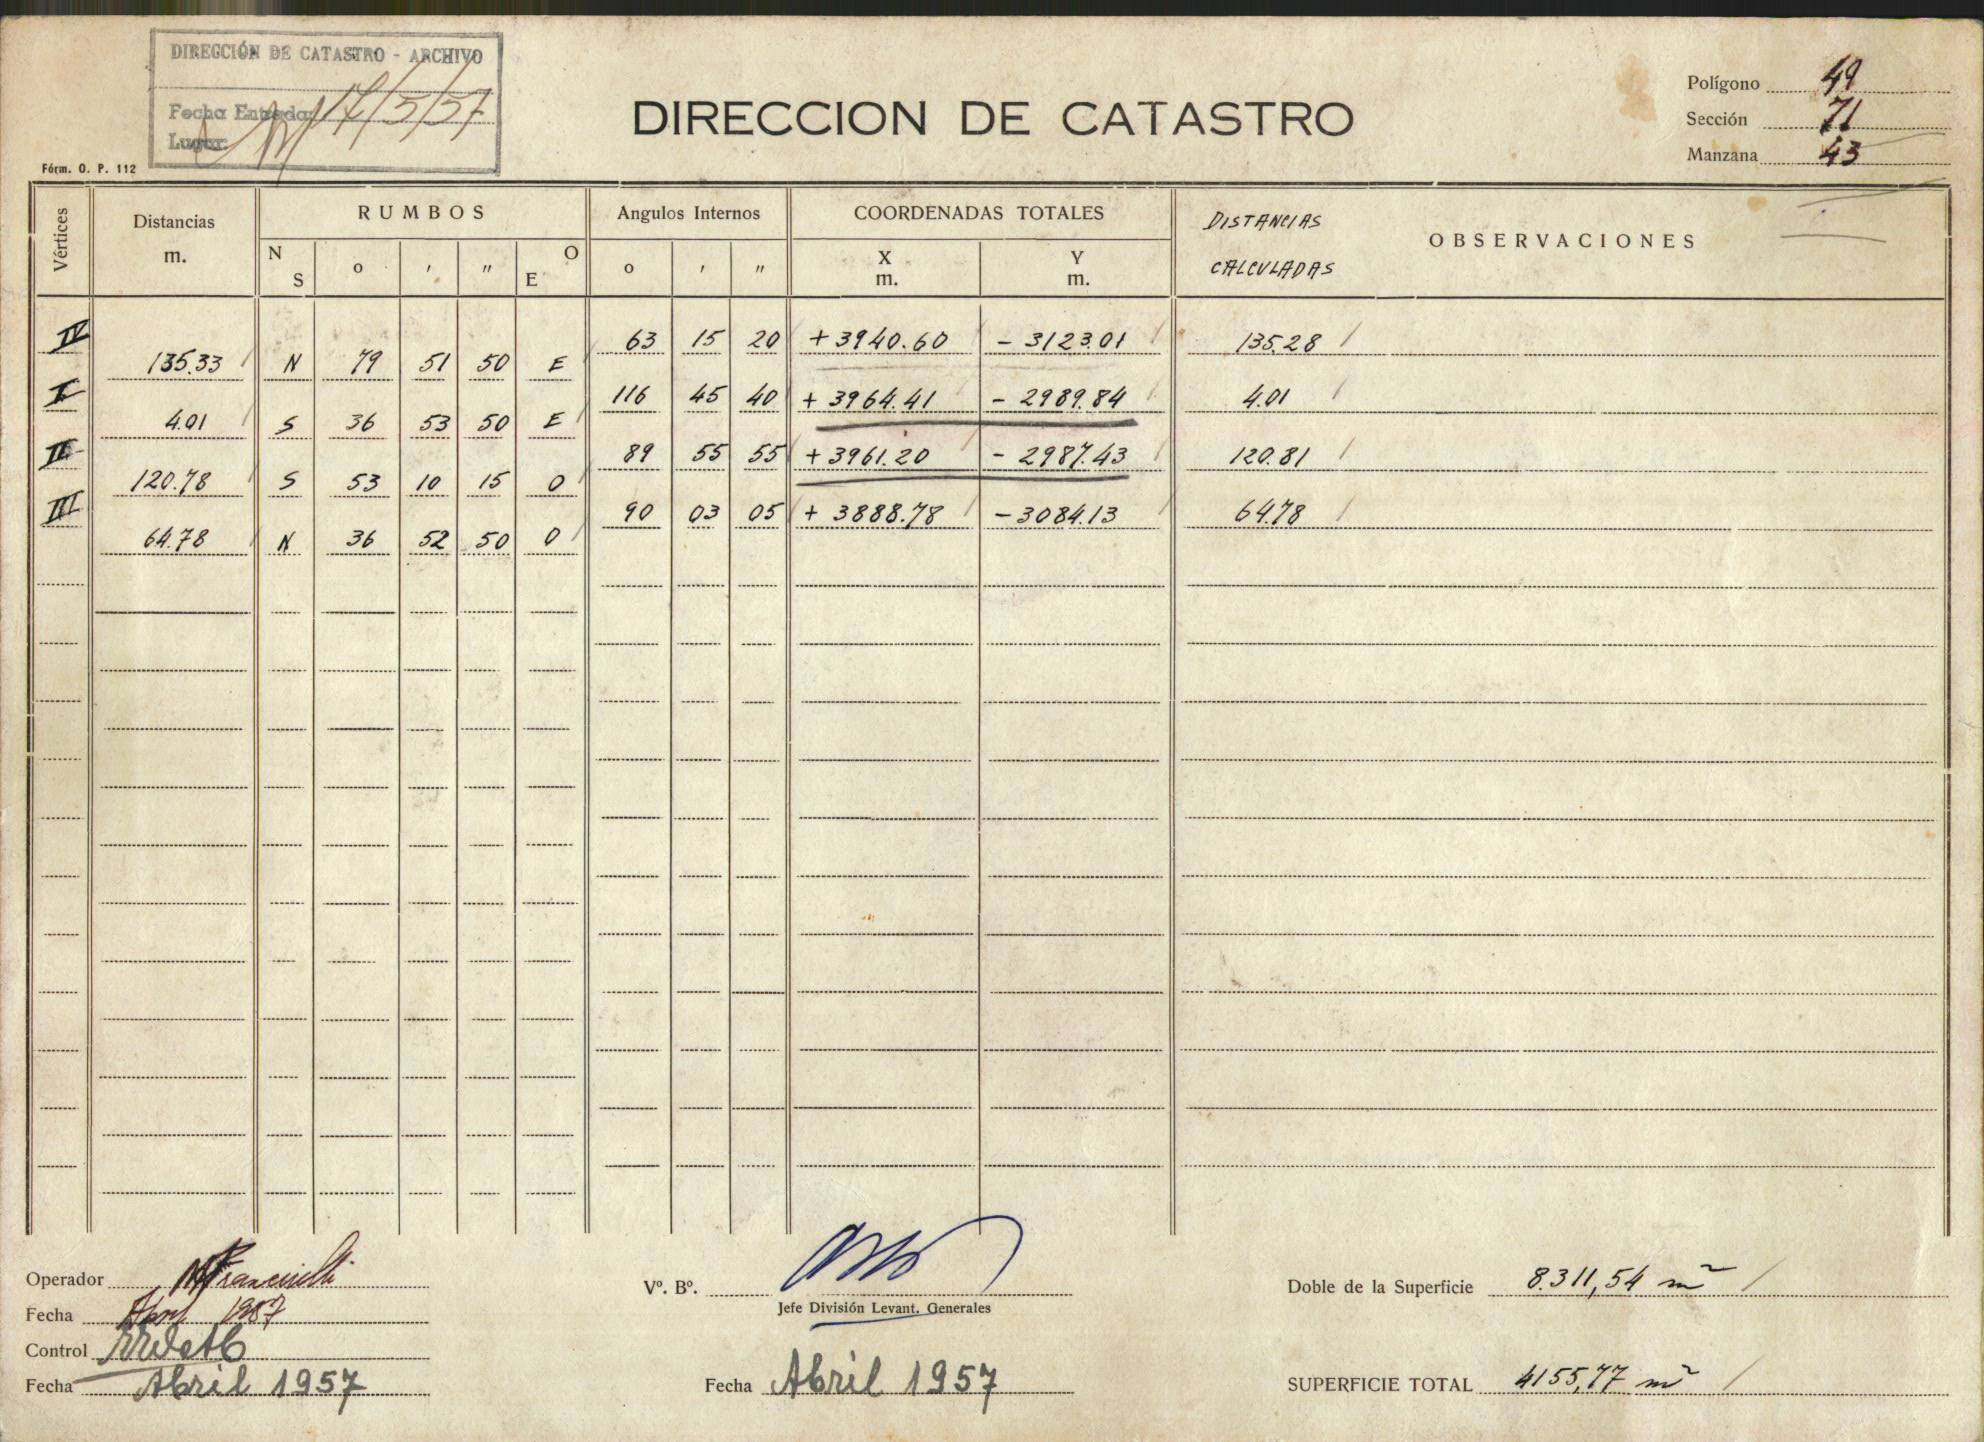 DIRECCIÓN DE CATASTRO - ARCHIVO
Fecha Entrada: 17/5/57
Lugar:
Fórm. O. P. 112
DIRECCION DE CATASTRO
Polígono 49
Sección 71
Manzana 43
Vértices Distancias m. RUMBOS Angulos Internos COORDENADAS TOTALES DISTANCIAS CALCULADAS OBSERVACIONES
N S o ' " O E o ' " X m. Y m.
IV 63 15 20 + 3940.60 - 3123.01 135.28
135.33 N 79 51 50 E
I 116 45 40 + 3964.41 - 2989.84 4.01
4.01 S 36 53 50 E
II 89 55 55 + 3961.20 - 2987.43 120.81
120.78 S 53 10 15 O
III 90 03 05 + 3888.78 - 3084.13 64.78
64.78 N 36 52 50 O
Operador
Fecha Abril 1957
Control
Fecha Abril 1957
Vº. Bº.
Jefe División Levant. Generales
Fecha Abril 1957
Doble de la Superficie 8.311,54 m²
SUPERFICIE TOTAL 4155,77 m²